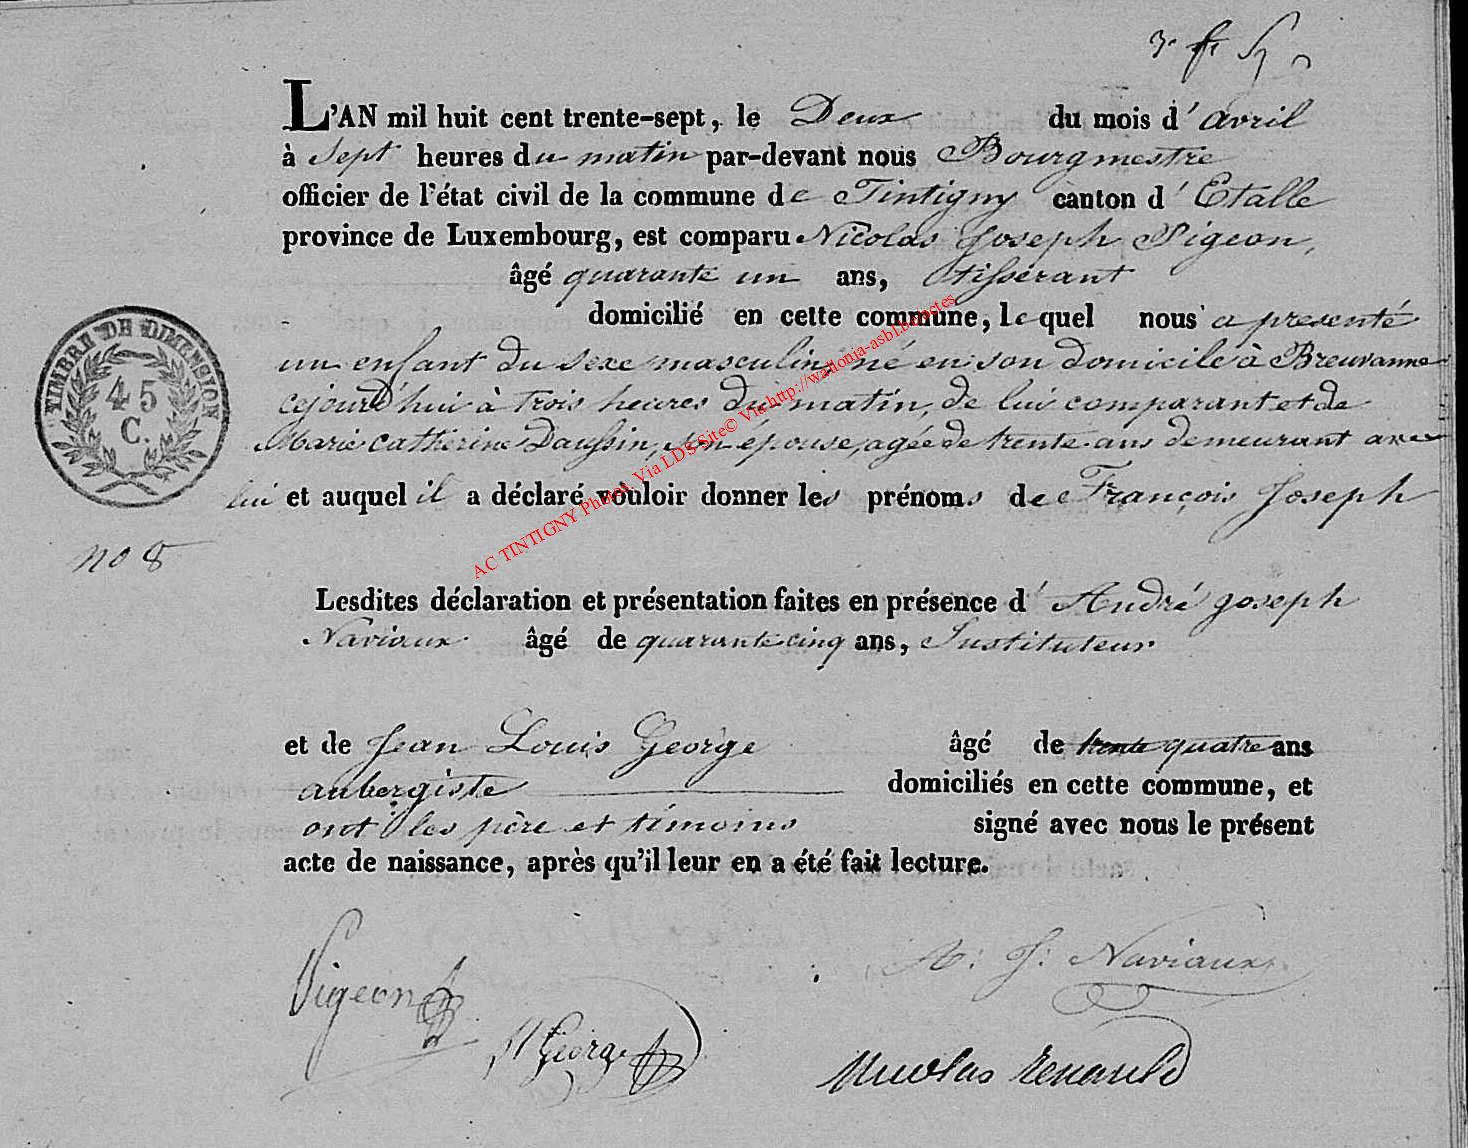 L'AN mil huit cent trente-sept, le Deux du mois d'avril
à Sept heures du matin par-devant nous Bourgmestre
officier de l'état civil de la commune de Tintigny canton d'Etalle
province de Luxembourg, est comparu Nicolas Joseph Pigeon,
âgé quarante un ans, tisserant
domicilié en cette commune, le quel nous a presenté
un enfant du sexe masculin, né en son domicile à Breuvanne
cejourd'hui à trois heures du matin, de lui comparant et de
Marie Catherine Daussin, son épouse, agée de trente ans demeurant avec
lui et auquel il a déclaré vouloir donner les prénoms de François Joseph
TIMBRE DE DIMENSION
45
C.
no 8
AC TINTIGNY Photos Via LDS Site© Via http://wallonia-asbl.be/actes
Lesdites déclaration et présentation faites en présence d'André joseph
Naviaux âgé de quarante cinq ans, Instituteur
et de Jean Louis George âgé de trente quatre ans
aubergiste domiciliés en cette commune, et
ont les père et témoins signé avec nous le présent
acte de naissance, après qu'il leur en a été fait lecture.
Pigeon
A: J: Naviaux
George
Nicolas Renauld